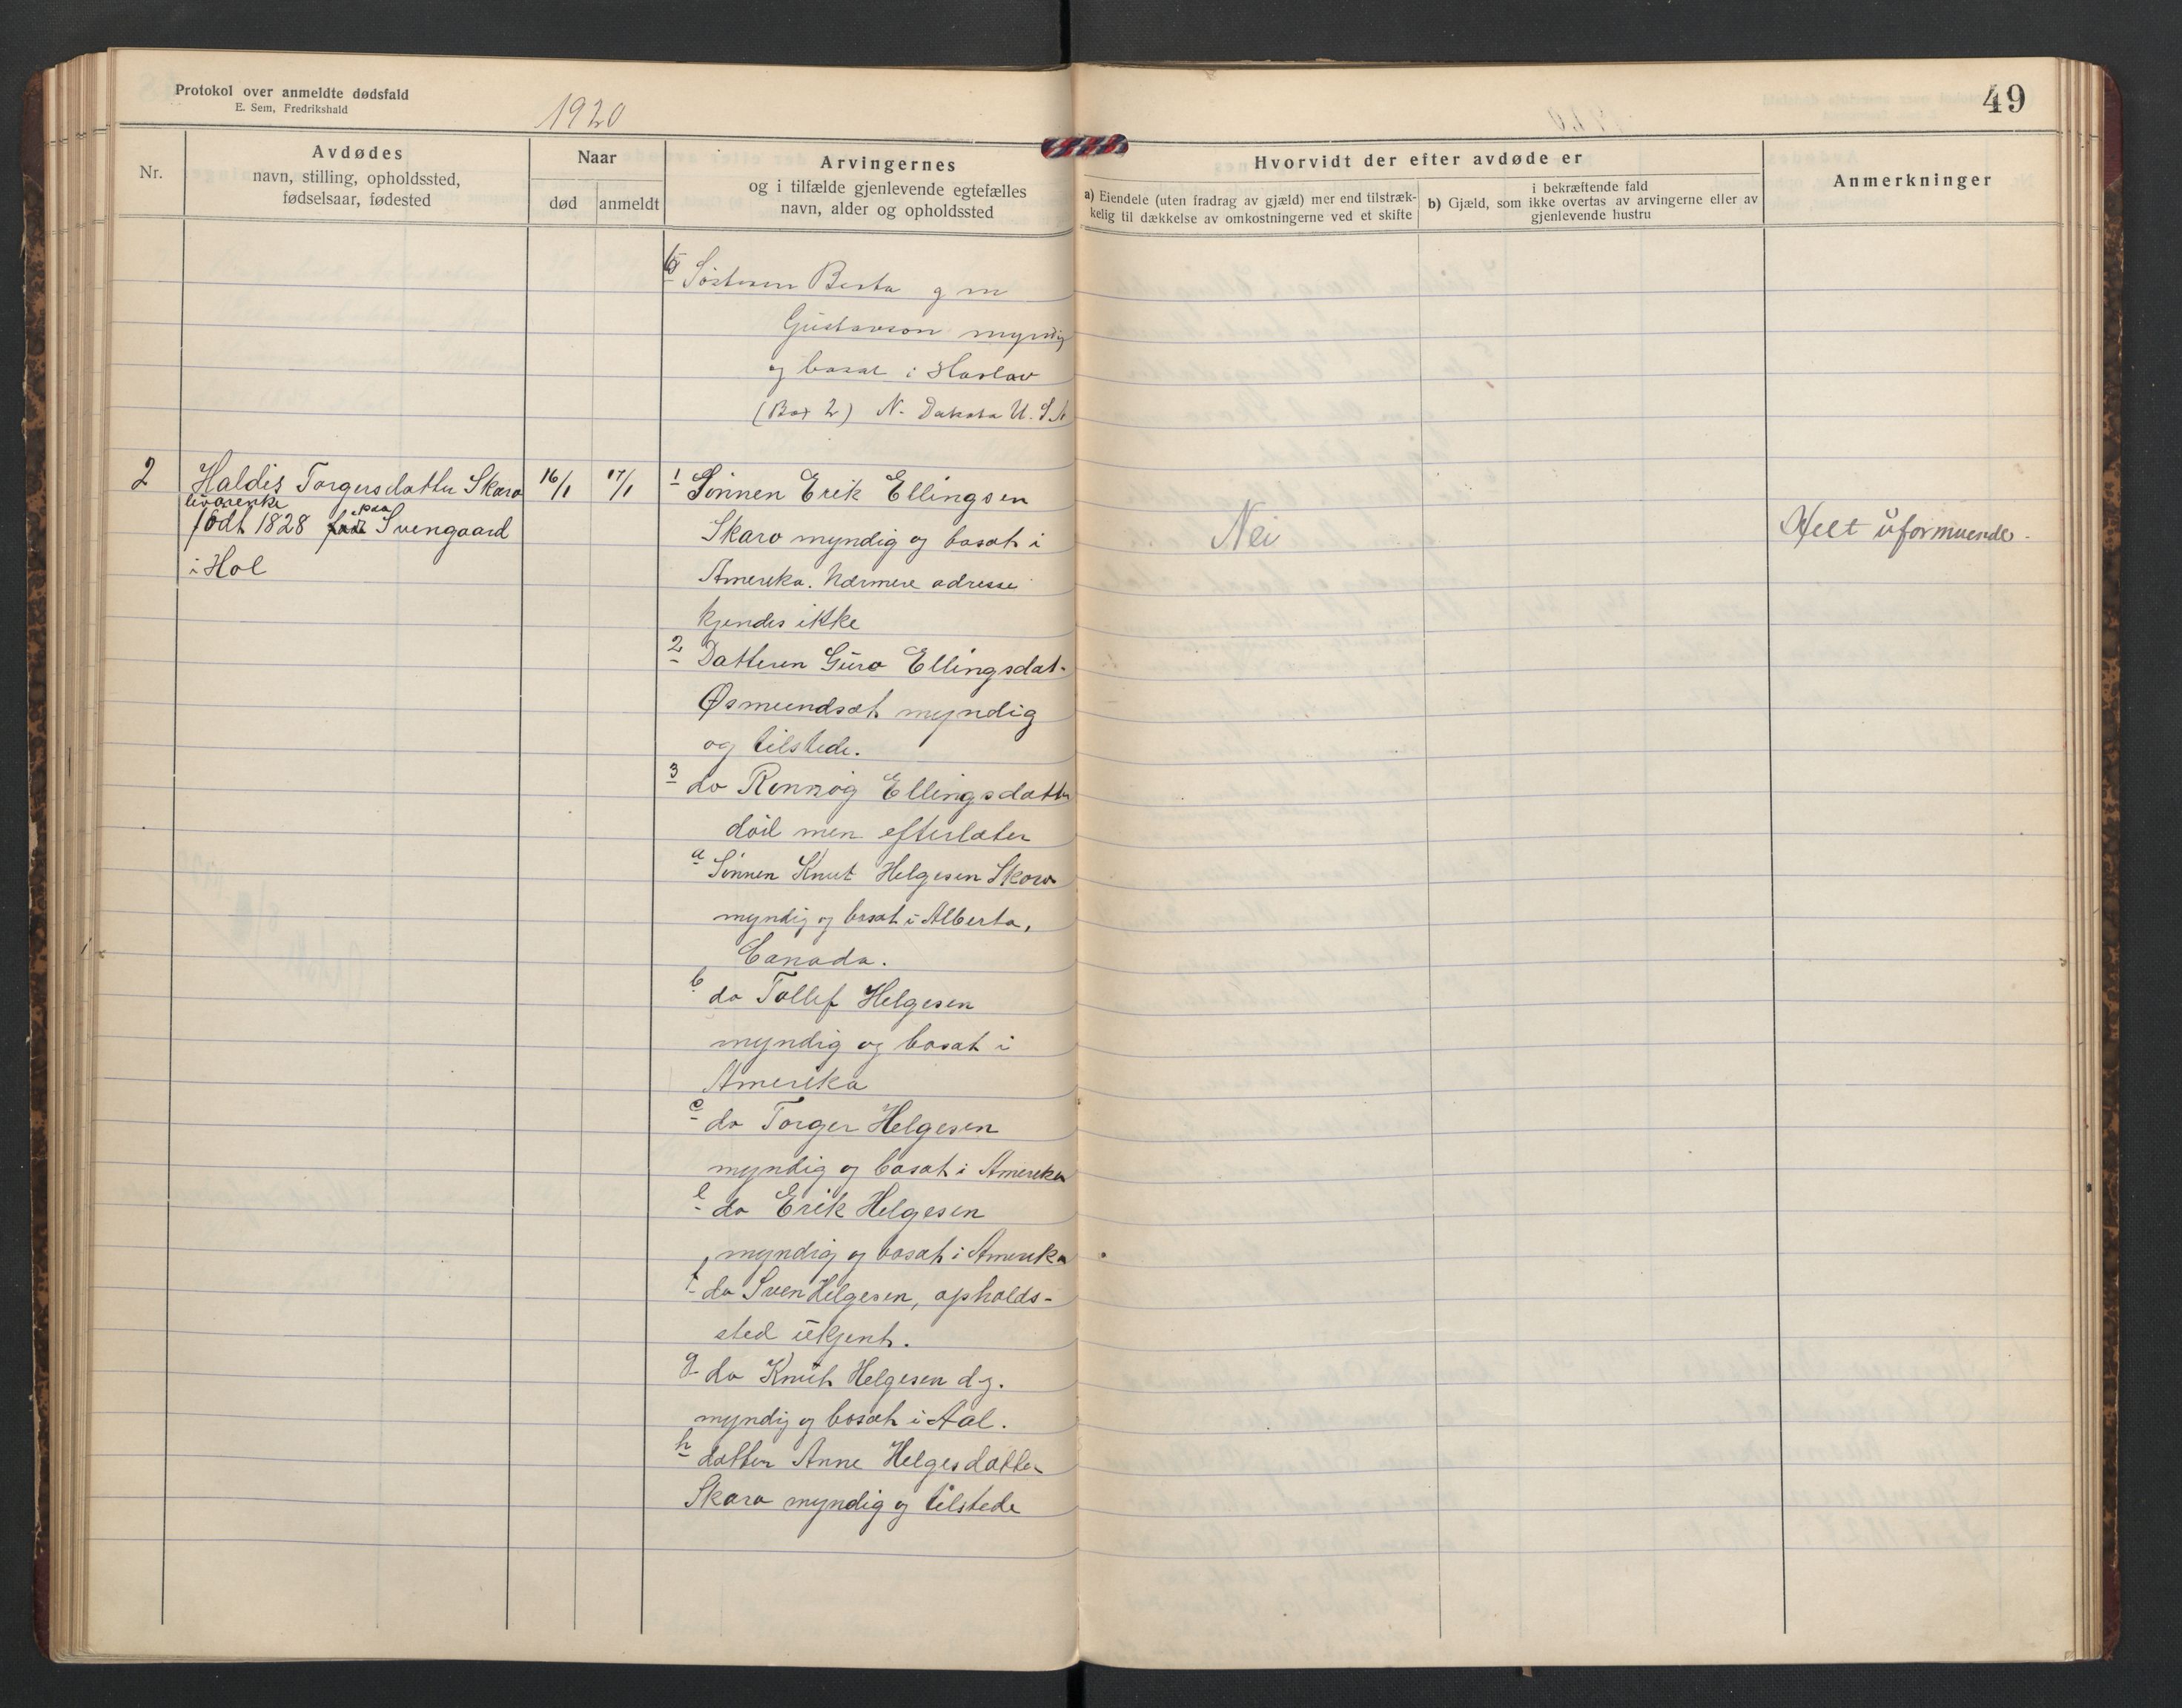 Protokol over anmeldte dødsfald
E. Sem, Fredrikshald
1920
49
Nr.
Avdødes
navn, stilling, opholdssted,
fødselsaar, fødested
Naar
død
anmeldt
Arvingernes
og i tilfælde gjenlevende egtefælles
navn, alder og opholdssted
Hvorvidt der efter avdøde er
a) Eiendele (uten fradrag av gjæld) mer end tilstræk-
kelig til dækkelse av omkostningerne ved et skifte
i bekræftende fald
b) Gjæld, som ikke overtas av arvingerne eller av
gjenlevende hustru
Anmerkninger
Søsteren Berta g m
Gustavson myndig
og bosat i Haslav
(Box 2) N. Dakota U.S.A
2
Haldis Torgersdatter Skaro
født 1828 paa Svengaard
i Hol
16/1
17/1
1 Sønnen Erik Ellingsen
Skaro myndig og bosat i
Amerika. Nærmere adresse
kjendes ikke
2 Datteren Guro Ellingsdat.
Øsmundsæt myndig
og tilstede.
3 do Rennog Ellingsdatter
død men efterlater
a Sønnen Knut Helgesen Skaro
myndig og bosat i Alberta,
Canada.
b do Tollef Helgesen
myndig og bosat i
Amerika
c do Torger Helgesen
myndig og bosat i Amerika
e do Erik Helgesen
myndig og bosat i Amerika
f do Sven Helgesen, opholds-
sted ukjent.
g do Knut Helgesen d.y.
myndig og bosat i Aal.
h datter Anne Helgesdatter
Skaro myndig og tilstede
Nei
Helt uformuende.